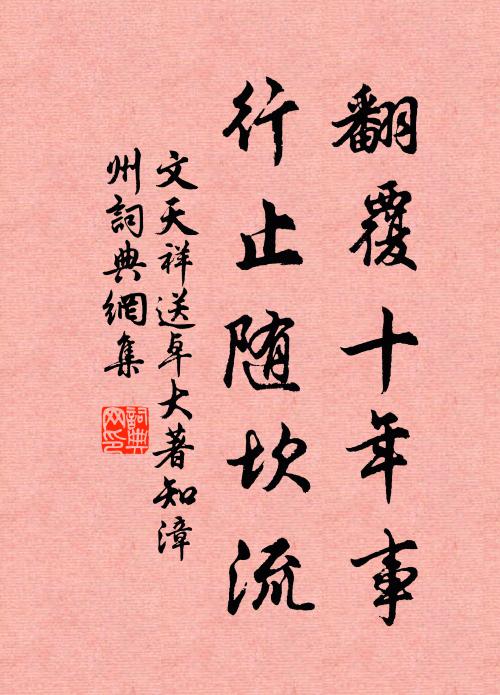 翻覆十年事
行止随坎流
文天祥送卓大著知漳
州詞典網集
詞典
网印